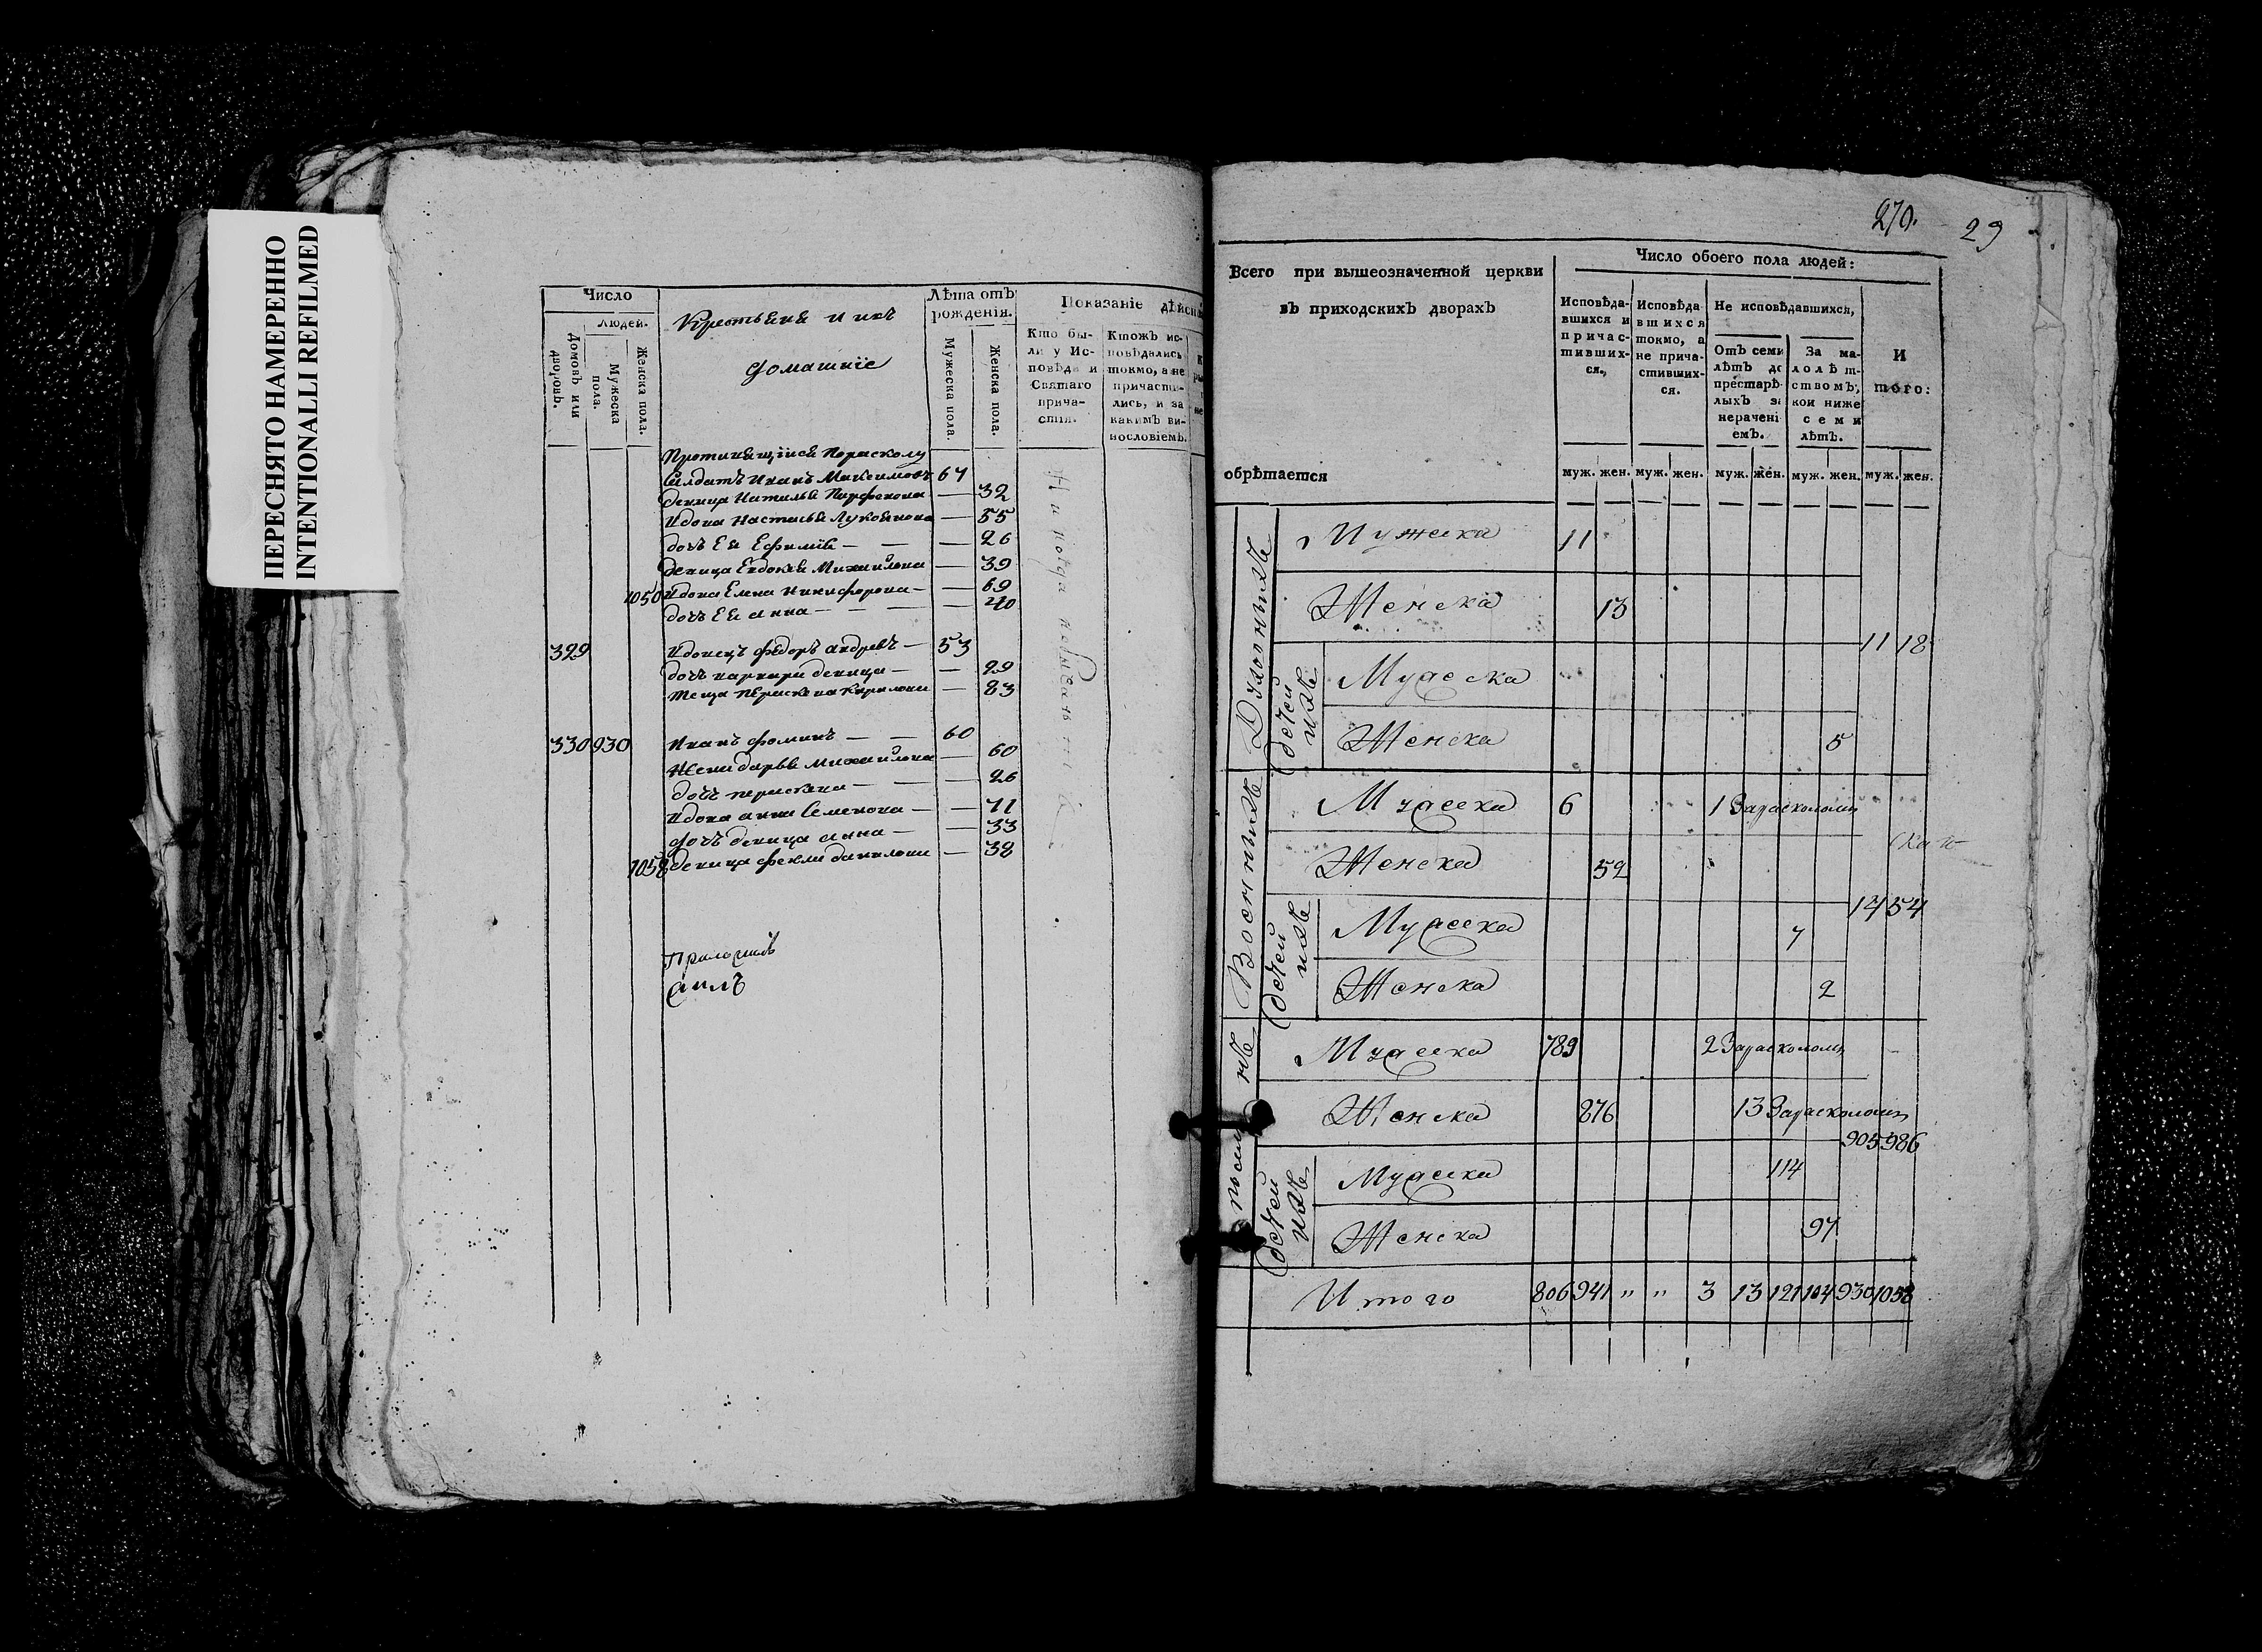 ПЕРЕСНЯТО НАМЕРЕННО
INTENTIONALLI REFILMED
Число
Людей.
Домовъ или дворовъ.
Мужеска пола.
Женска пола.
Крестьяня и ихъ
домашнїе
Лѣта отъ рожденія.
Мужеска пола.
Женска пола.
Показаніе дѣйс
Кто были у Исповѣди и Святаго причастія.
Ктожъ исповѣдались токмо, а не причастились, и за какимъ винословіемъ.
Солдатъ Иванъ Максимовъ 67
девица Наталья Парфенова — 32
вдова Настасья Лукоянова — 55
дочь Ея Ефимїя — — — 26
девица Евдокея Михайлова — 39
1050 вдова Елена Никифорова — — 69
дочь Ея анна — — — 40
329 вдовецъ федоръ андревъ — 53
дочь варвара девица — — 29
теща Пераскева Карпилова — 83
330 930 Иванъ фоминъ — — 60
Жена дарья михайлова — 60
дочь пераскева — — 26
вдова анна Семенова — — 71
дочь девица анна — — 33
1058 девица фекла данилова — 38
270. 29
Всего при вышеозначенной церкви
въ приходскихъ дворахъ
обрѣтается
Число обоего пола людей:
Исповѣдавшихся и причастившихся.,
Исповѣдавшихся токмо, а не причастившихся.
Не исповѣдавшихся,
Отъ семи лѣтъ до престарѣлыхъ за нераченіемъ.
За малолѣтствомъ, кои ниже семи лѣтъ.
И того:
муж. жен. муж. жен. муж. жен. муж. жен. муж. жен.
Духовныхъ
Мужеска 11
Женска 13
11 18
детей ихъ
Мужеска
Женска 5
Военныхъ
Мужеска 6 1 За расколомъ
Женска 52
14 54
детей ихъ
Мужеска 7
Женска 2
Мужеска 789 2 За расколомъ
Женска 876 13 За расколомъ
905 986
детей ихъ
Мужеска 114
Женска 97
Итого 806 941 " " 3 13 121 104 930 1058